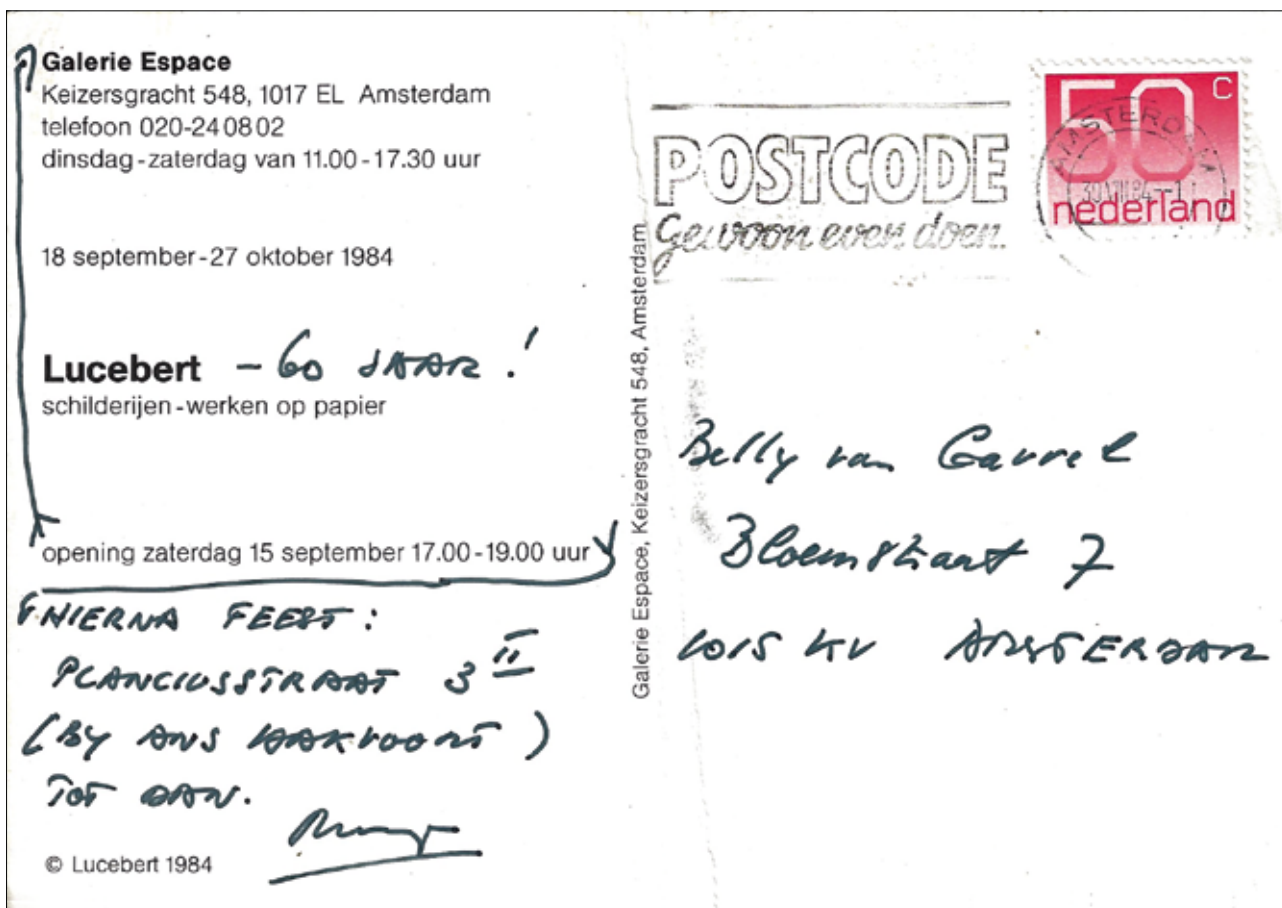 Galerie Espace
Keizersgracht 548, 1017 EL Amsterdam
telefoon 020-240802
dinsdag-zaterdag van 11.00-17.30 uur
18 september-27 oktober 1984
Lucebert - 60 JAAR!
schilderijen-werken op papier
opening zaterdag 15 september 17.00-19.00 uur
HIERNA FEEST:
PLANCIUSSTRAAT 3 II
(BY ANS HAKVOORT)
TOT DAN.
© Lucebert 1984
Galerie Espace, Keizersgracht 548, Amsterdam
POSTCODE
Gewoon even doen.
50 C
nederland
AMSTERDAM
van
Bloemstraat 7
1015 KV AMSTERDAM